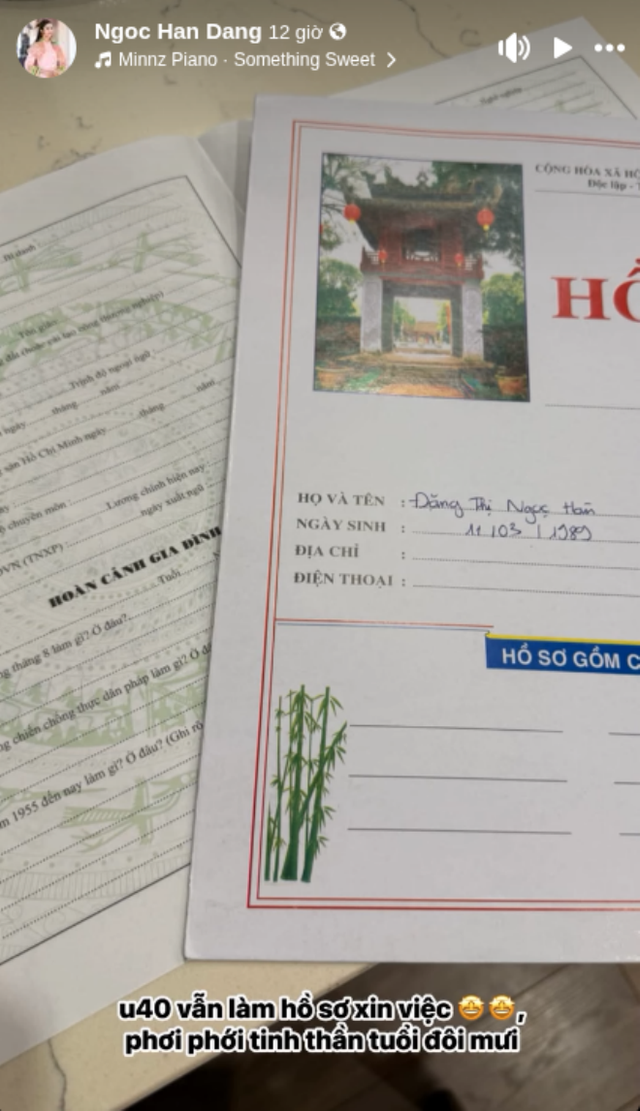 Ngoc Han Dang 12 giờ
Minnz Piano · Something Sweet
CỘNG HÒA XÃ HỘ
Độc lập - T
HỒ
HỌ VÀ TÊN : Đặng Thị Ngọc Hân
NGÀY SINH : 11 / 03 / 1989
ĐỊA CHỈ :
ĐIỆN THOẠI :
HỒ SƠ GỒM C
Bí danh
Trình độ ngoại ngữ
ngày tháng năm
tháng năm
sản Hồ Chí Minh ngày
chuyên môn : Lương chính hiện nay
ngày xuất ngũ
VN (TNXP) :
HOÀN CẢNH GIA ĐÌNH
Tuổi
ng tháng 8 làm gì? Ở đâu?
ng chiến chống thực dân pháp làm gì? Ở đâ
m 1955 đến nay làm gì? Ở đâu? (Ghi rõ
u40 vẫn làm hồ sơ xin việc 🤩🤩,
phơi phới tinh thần tuổi đôi mươi